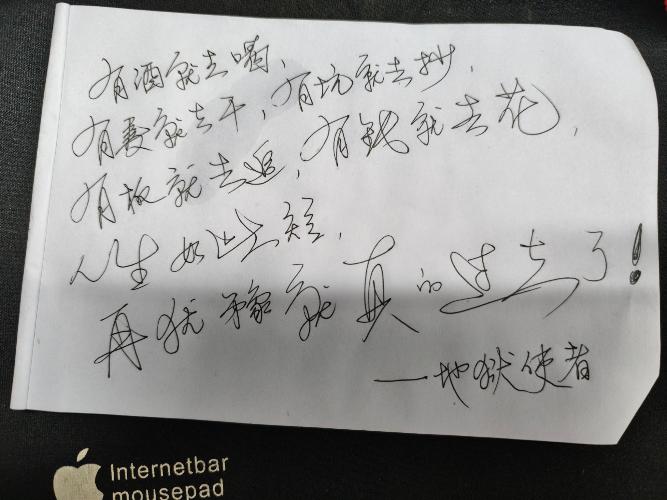 有酒就去喝,
有爱就去干,有坑就去抄,
有板就去追,有钱就去花,
人生如此短,
再犹豫就真的过去了!
—地狱使者
Internetbar
mousepad